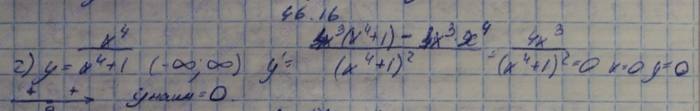 46.16
2) y = x⁴/(x⁴+1) (-∞;∞) y' = (4x³(x⁴+1) - 4x³·x⁴)/(x⁴+1)² = 4x³/(x⁴+1)² = 0 x=0 y=0
+ + yнаим = 0.